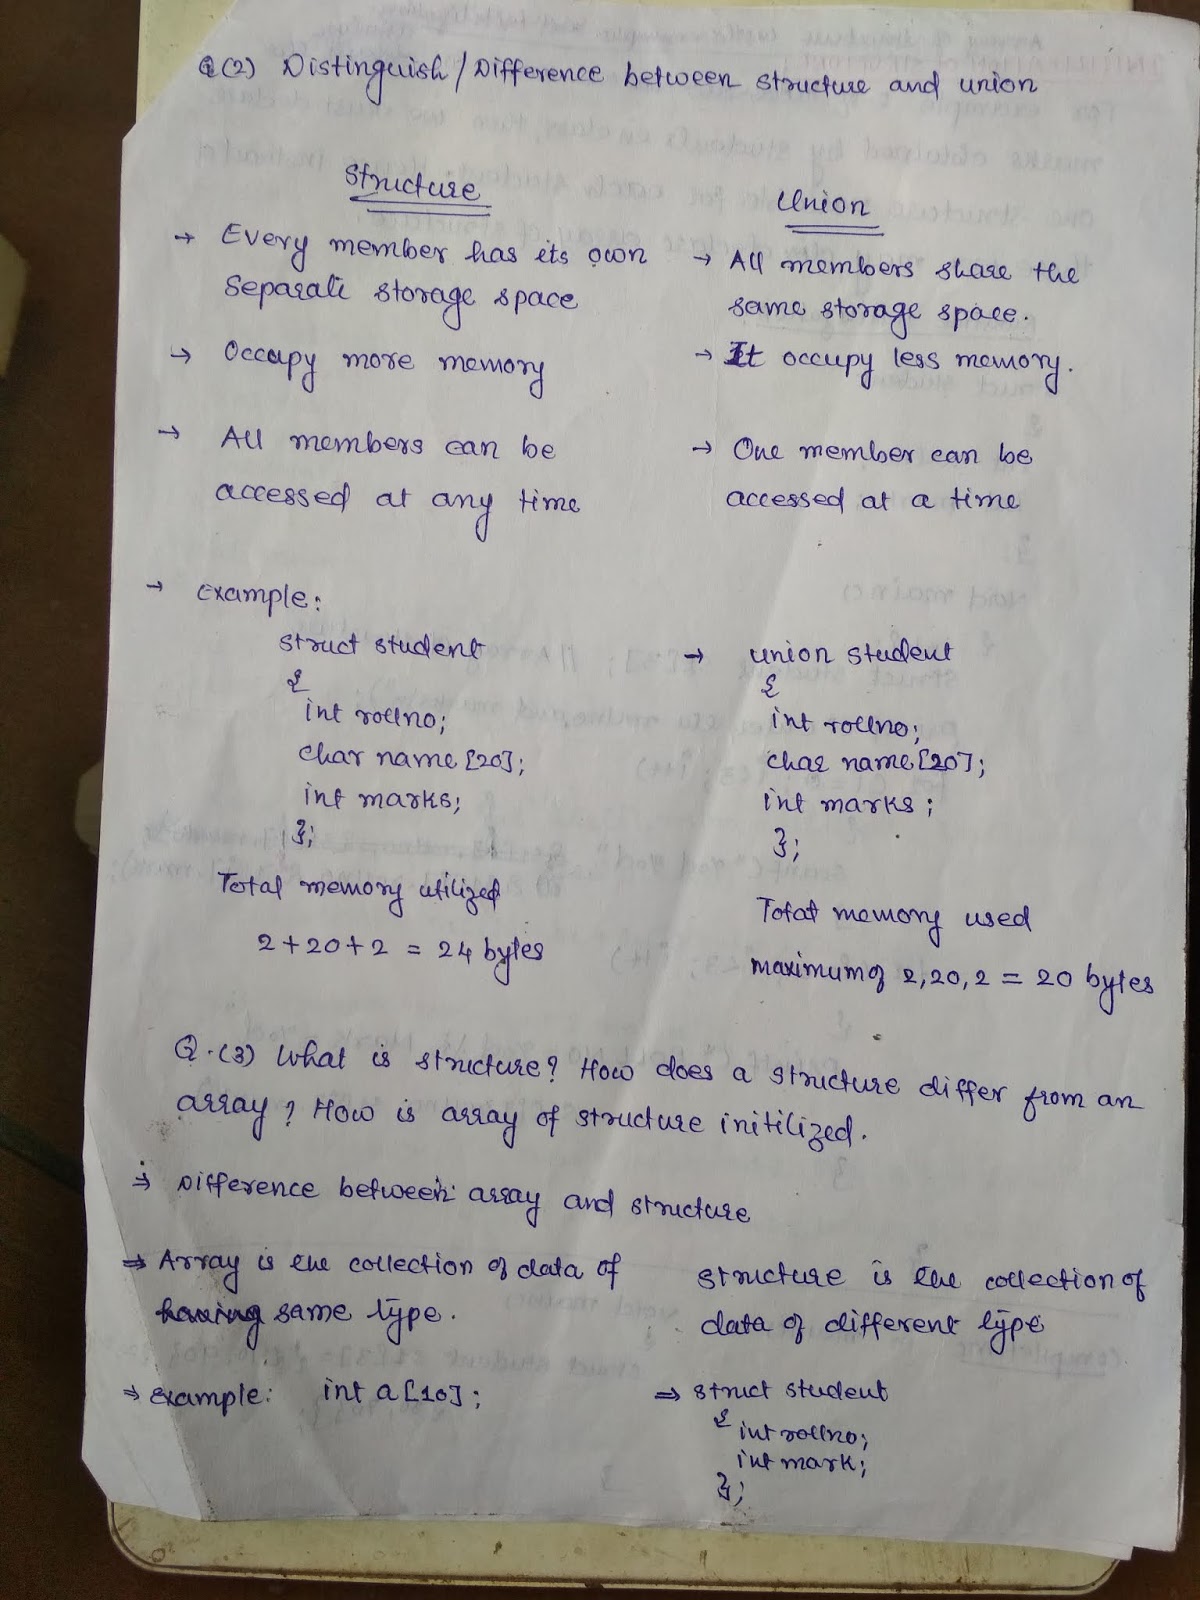 Q(2) Distinguish/Difference between structure and union
Structure
→ Every member has its own
separate storage space
→ Occupy more memory
→ All members can be
accessed at any time
→ Example:
struct student
{
int rollno;
char name[20];
int marks;
};
Total memory utilized
2+20+2 = 24 bytes
Union
→ All members share the
same storage space.
→ It occupy less memory.
→ One member can be
accessed at a time
→ union student
{
int rollno;
char name[20];
int marks;
};
Total memory used
maximum of 2,20,2 = 20 bytes
Q.(3) What is structure? How does a structure differ from an
array? How is array of structure initilized.
⇒ Difference between array and structure
⇒ Array is the collection of data of
having same type.
⇒ Example: int a[10];
structure is the collection of
data of different type
⇒ struct student
{ int rollno;
int mark;
};